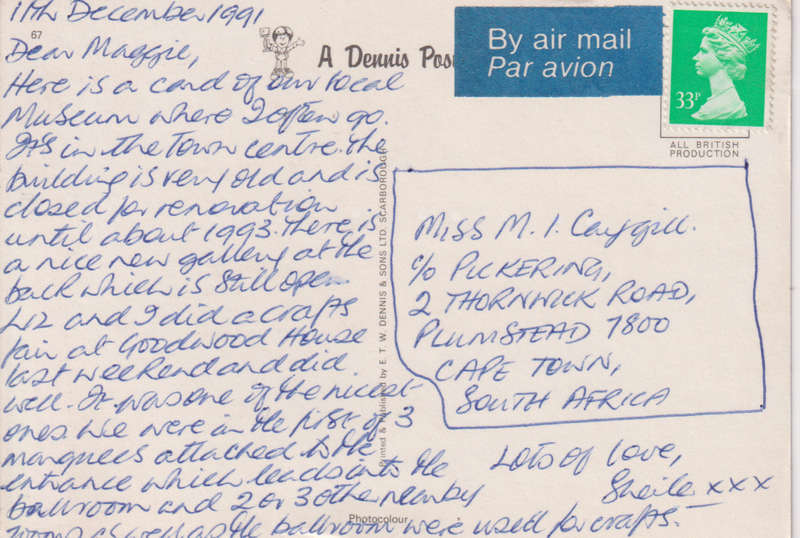 11th December 1991
67
Dear Maggie,
Here is a card of our local
Museum where I often go.
It's in the Town centre. the
building is very old and is
closed for renovation
until about 1993. there is
a nice new gallery at the
back which is still open.
Liz and I did a crafts
fair at Goodwood House
last weekend and did
well. It was one of the nicest
ones. We were in the first of 3
marquees attached to the
entrance which leads into the
ballroom and 2 or 3 other nearby
rooms as well as the ballroom were used for crafts.
Lots of love,
Sheila xxx
A Dennis Pos
By air mail
Par avion
33P
ALL BRITISH
PRODUCTION
Miss M. I. Caygill.
c/o PICKERING,
2 THORNWICK ROAD,
PLUMSTEAD 7800
CAPE TOWN,
SOUTH AFRICA
Printed & Published by E. T. W. DENNIS & SONS LTD. SCARBOROUGH
Photocolour